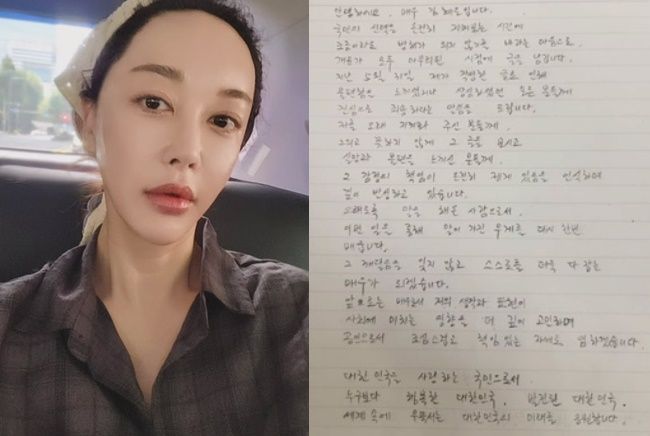 안녕하세요. 배우 김혜은입니다.
국민의 선택을 온전히 지켜보는 시간에
조금이라도 방해가 되지 않기를 바라는 마음으로,
개표가 모두 마무리된 시점에 글을 남깁니다.
지난 5월 31일, 제가 작성한 글로 인해
불편함을 느끼셨거나 상심하셨던 모든 분들께
진심으로 죄송하다는 말씀을 드립니다.
저를 오래 지켜봐 주신 분들께,
그리고 뜻하지 않게 그 글을 보시고
실망과 불편을 느끼신 분들께.
그 감정의 책임이 온전히 제게 있음을 인식하며
깊이 반성하고 있습니다.
오래도록 말을 해온 사람으로서,
이번 일을 통해 말이 가진 무게를 다시 한번
배웁니다.
그 깨달음을 잊지 않고 스스로를 더욱 다잡는
배우가 되겠습니다.
앞으로는 배우로서 저의 생각과 표현이
사회에 미치는 영향을 더 깊이 고민하며
공인으로서 조심스럽고 책임 있는 자세로 임하겠습니다.
대한민국을 사랑하는 국민으로서,
누구보다 행복한 대한민국, 발전된 대한민국,
세계 속에 우뚝서는 대한민국의 미래를 응원합니다.